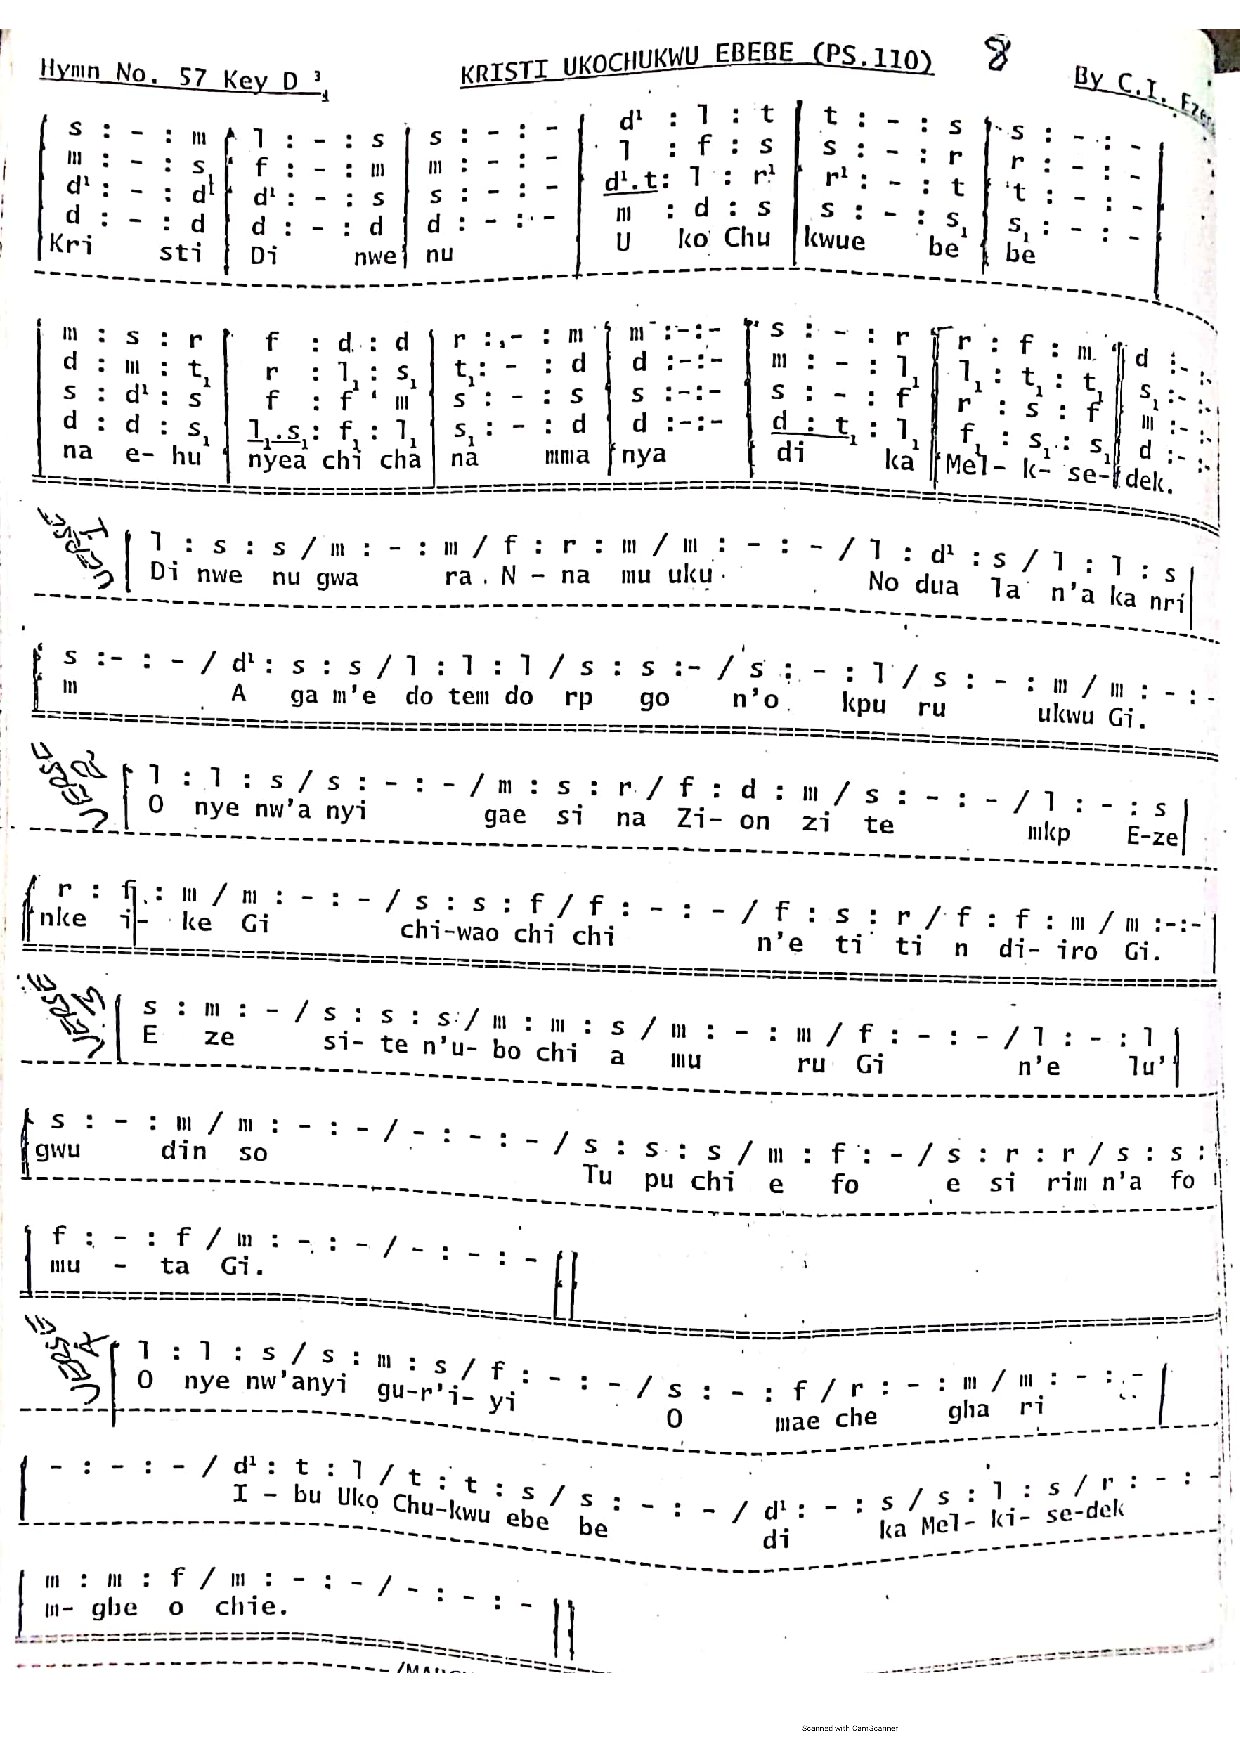 Hymn No. 57 Key D 3/4
KRISTI UKOCHUKWU EBEBE (PS.110)
8
By C.I.
s : - : m | l : - : s | s : - : - | d¹ : l : t | t : - : s | s : - : -
m : - : s₁ | f : - : m | m : - : - | l : f : s | s : - : r | r : - : -
d¹ : - : d¹ | d¹ : - : s | s : - : - | d¹.t : l : r¹ | r¹ : - : t | t : - : -
d : - : d | d : - : d | d : - : - | m : d : s | s : - : s₁ | s₁ : - : -
Kri sti | Di nwe | nu | U ko Chu | kwue be | be
m : s : r | f : d : d | r : - : m | m : - : - | s : - : r | r : f : m | d : - : -
d : m : t₁ | r : l₁ : s₁ | t₁ : - : d | d : - : - | m : - : l₁ | l₁ : t₁ : t₁ | s₁ : - : -
s : d¹ : s | f : f : m | s : - : s | s : - : - | s : - : f | r : s : f | m : - : -
d : d : s₁ | l₁.s₁ : f₁ : l₁ | s₁ : - : d | d : - : - | d : t₁ : l₁ | f₁ : s₁ : s₁ | d : - : -
na e- hu | nyea chi cha | na mma | nya | di ka | Mel- k- se- | dek.
VERSE 1
l : s : s / m : - : m / f : r : m / m : - : - / l : d¹ : s / l : l : s
Di nwe nu gwa ra. N - na mu uku. No dua la n'a ka nri
s : - : - / d¹ : s : s / l : l : l / s : s : - / s : - : l / s : - : m / m : - : -
m A ga m'e do tem do rp go n'o kpu ru ukwu Gi.
VERSE 2
l : l : s / s : - : - / m : s : r / f : d : m / s : - : - / l : - : s
O nye nw'a nyi gae si na Zi- on zi te mkp E-ze
r : f : m / m : - : - / s : s : f / f : - : - / f : s : r / f : f : m / m : - : -
nke i- ke Gi chi-wao chi chi n'e ti ti n di- iro Gi.
VERSE 3
s : m : - / s : s : s / m : m : s / m : - : m / f : - : - / l : - : l
E ze si- te n'u- bo chi a mu ru Gi n'e lu'
s : - : m / m : - : - / - : - : - / s : s : s / m : f : - / s : r : r / s : s :
gwu din so Tu pu chi e fo e si rim n'a fo
f : - : f / m : - : - / - : - : -
mu - ta Gi.
VERSE 4
l : l : s / s : m : s / f : - : - / s : - : f / r : - : m / m : - : -
O nye nw'anyi gu-r'i- yi O mae che gha ri
- : - : - / d¹ : t : l / t : t : s / s : - : - / d¹ : - : s / s : l : s / r : - : -
I - bu Uko Chu-kwu ebe be di ka Mel- ki- se-dek
m : m : f / m : - : - / - : - : -
m- gbe o chie.
Scanned with CamScanner